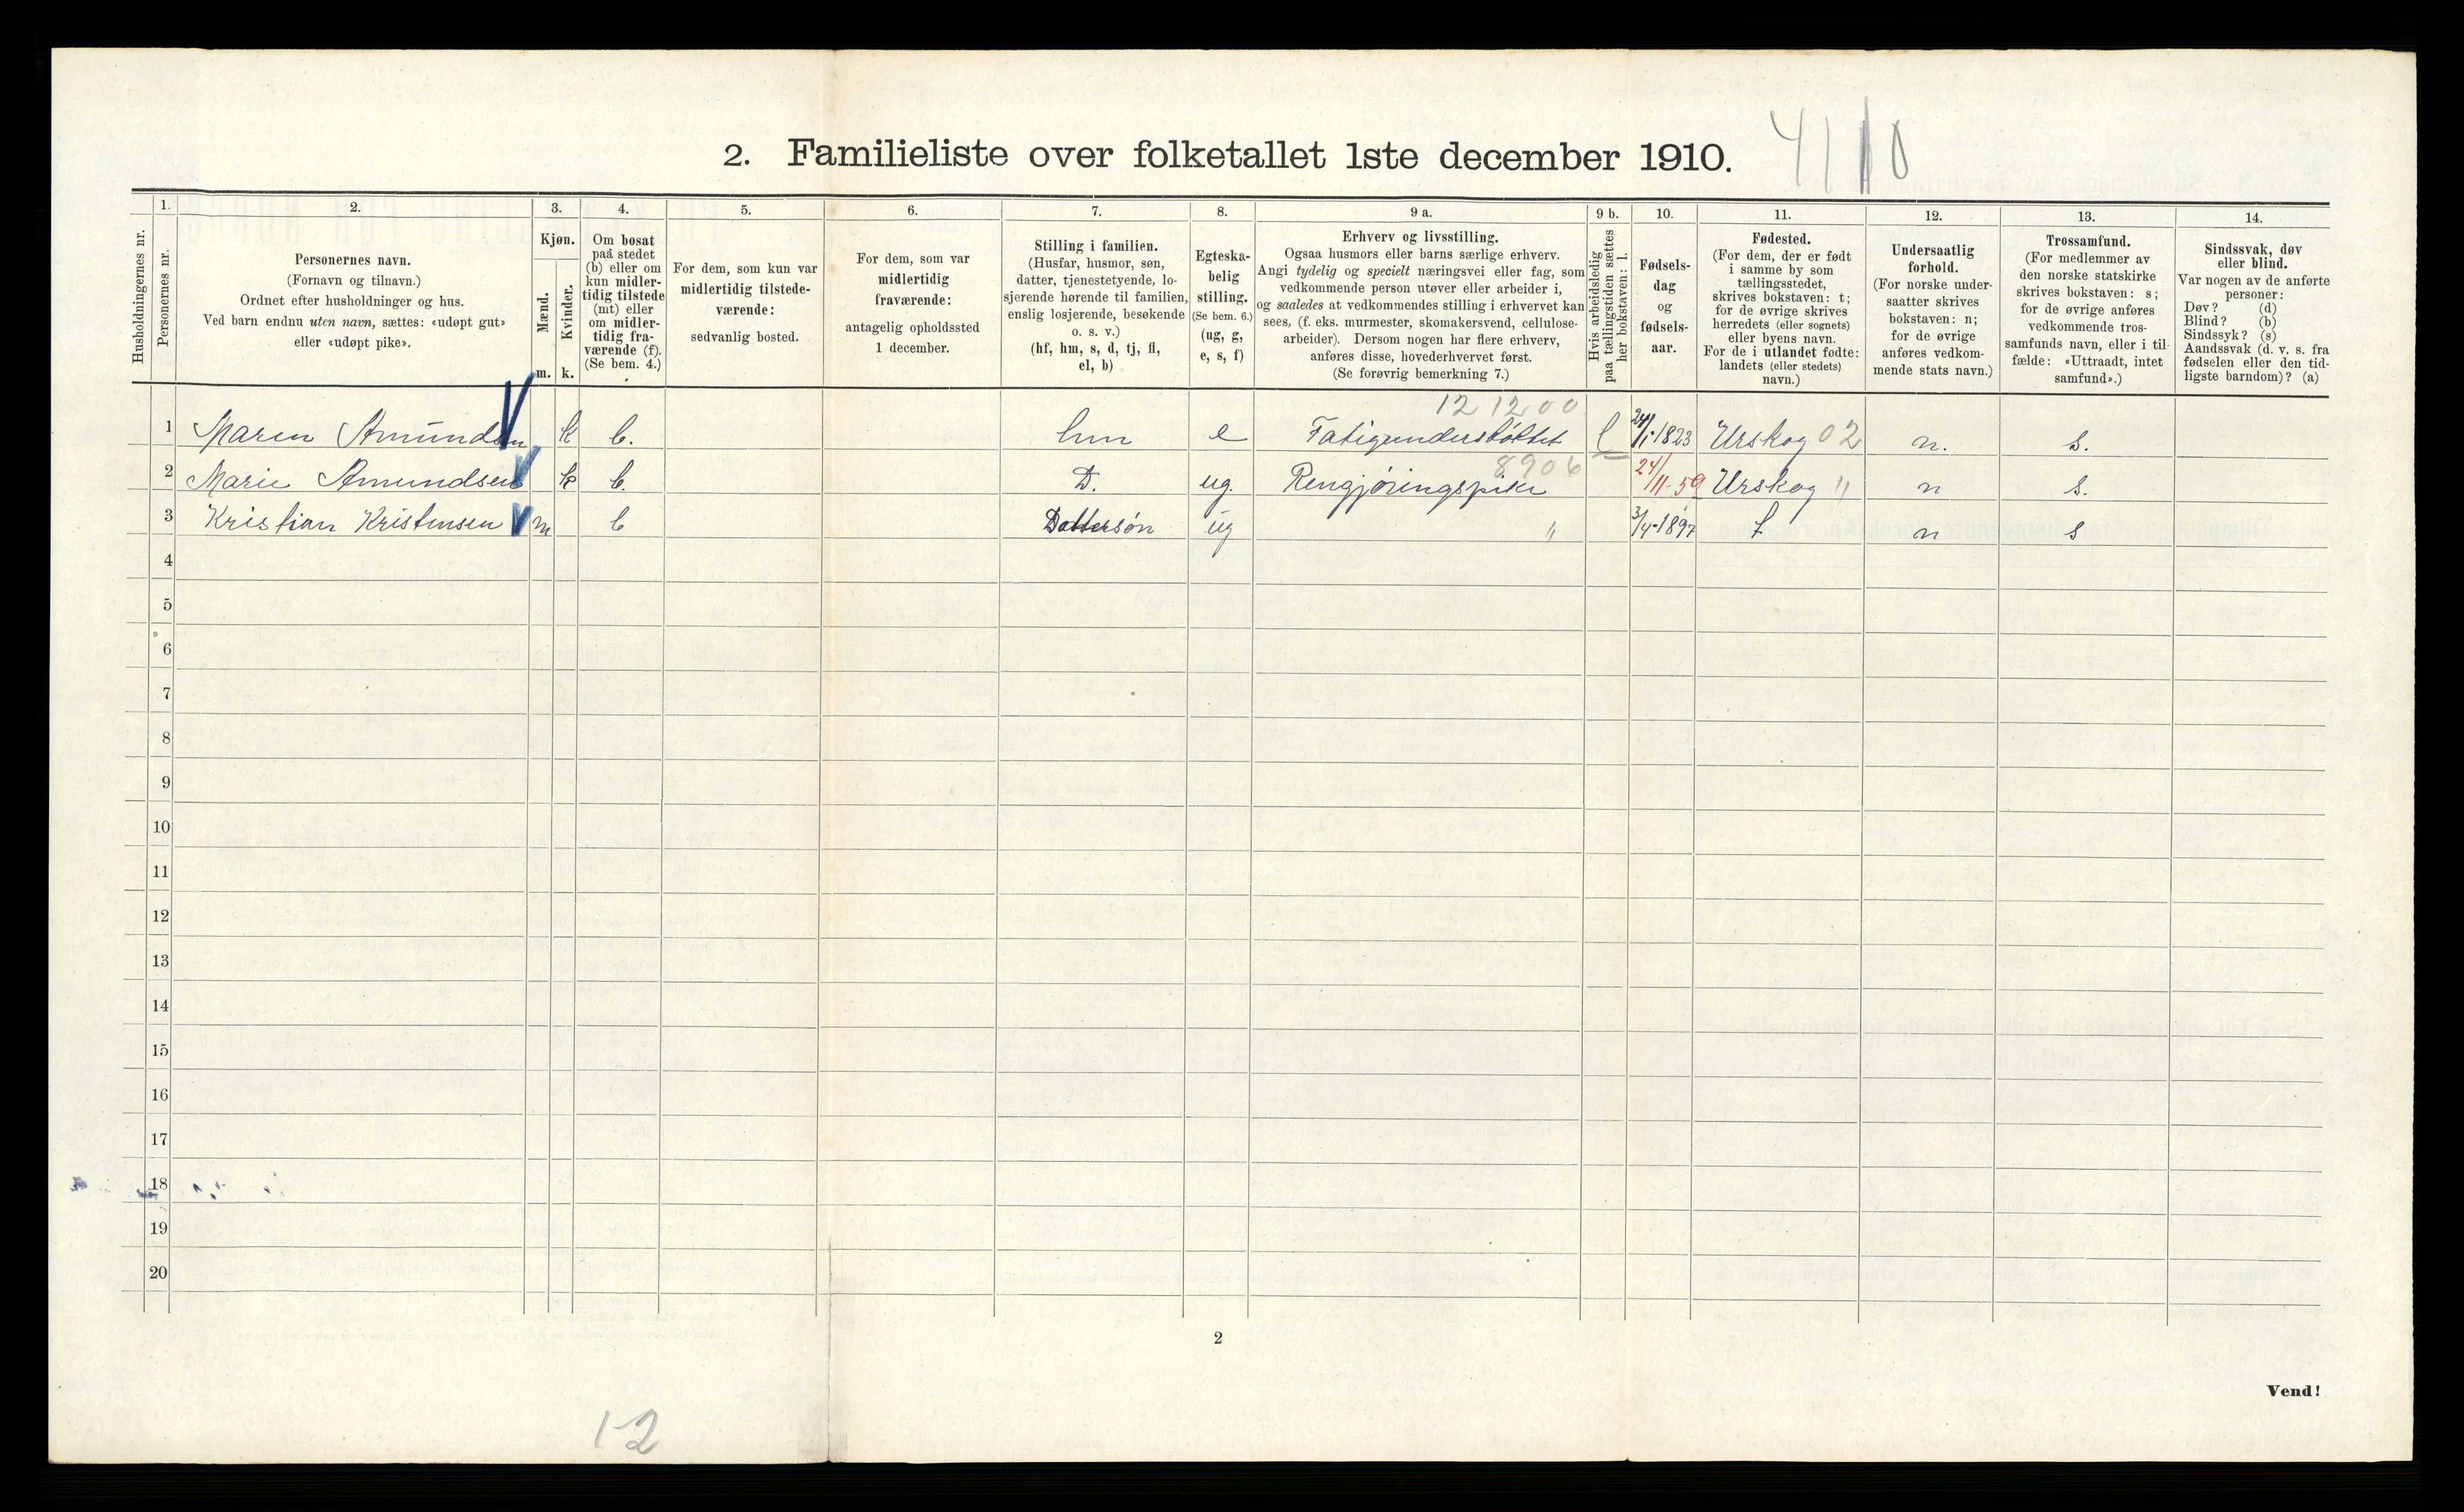 2. Familieliste over folketallet 1ste december 1910. 4110
Husholdningernes nr.
1. Personernes nr.
2. Personernes navn.
(Fornavn og tilnavn.)
Ordnet efter husholdninger og hus.
Ved barn endnu uten navn, sættes: «udøpt gut»
eller «udøpt pike».
3. Kjøn.
Mænd. m.
Kvinder. k.
4. Om bosat
paa stedet
(b) eller om
kun midler-
tidig tilstede
(mt) eller
om midler-
tidig fra-
værende (f).
(Se bem. 4.)
5. For dem, som kun var
midlertidig tilstede-
værende:
sedvanlig bosted.
6. For dem, som var
midlertidig
fraværende:
antagelig opholdssted
1 december.
7. Stilling i familien.
(Husfar, husmor, søn,
datter, tjenestetyende, lo-
sjerende hørende til familien,
enslig losjerende, besøkende
o. s. v.)
(hf, hm, s, d, tj, fl,
el, b)
8. Egteska-
belig
stilling.
(Se bem. 6.)
(ug, g,
e, s, f)
9 a. Erhverv og livsstilling.
Ogsaa husmors eller barns særlige erhverv.
Angi tydelig og specielt næringsvei eller fag, som
vedkommende person utøver eller arbeider i,
og saaledes at vedkommendes stilling i erhvervet kan
sees, (f. eks. murmester, skomakersvend, cellulose-
arbeider). Dersom nogen har flere erhverv,
anføres disse, hovederhvervet først.
(Se forøvrig bemerkning 7.)
9 b. Hvis arbeidsledig
paa tællingstiden sættes
her bokstaven: l.
10. Fødsels-
dag
og
fødsels-
aar.
11. Fødested.
(For dem, der er født
i samme by som
tællingsstedet,
skrives bokstaven: t;
for de øvrige skrives
herredets (eller sognets)
eller byens navn.
For de i utlandet fødte:
landets (eller stedets)
navn.)
12. Undersaatlig
forhold.
(For norske under-
saatter skrives
bokstaven: n;
for de øvrige
anføres vedkom-
mende stats navn.)
13. Trossamfund.
(For medlemmer av
den norske statskirke
skrives bokstaven: s;
for de øvrige anføres
vedkommende tros-
samfunds navn, eller i til-
fælde: «Uttraadt, intet
samfund».)
14. Sindssvak, døv
eller blind.
Var nogen av de anførte
personer:
Døv? (d)
Blind? (b)
Sindssyk? (s)
Aandssvak (d. v. s. fra
fødselen eller den tid-
ligste barndom)? (a)
12 12 00
1 Maren Amundsen k b. hm e Fatigunderstøttet l 24/1-1823 Urskog 02 n. s.
8906
2 Marie Amundsen k b. D. ug. Rengjøringspike 24/11-59 Urskog " n s.
3 Kristian Kristensen m b Dattersøn ug " 3/4-1897 t n s
4
5
6
7
8
9
10
11
12
13
14
15
16
17
18
19
20
2
Vend!
1-2